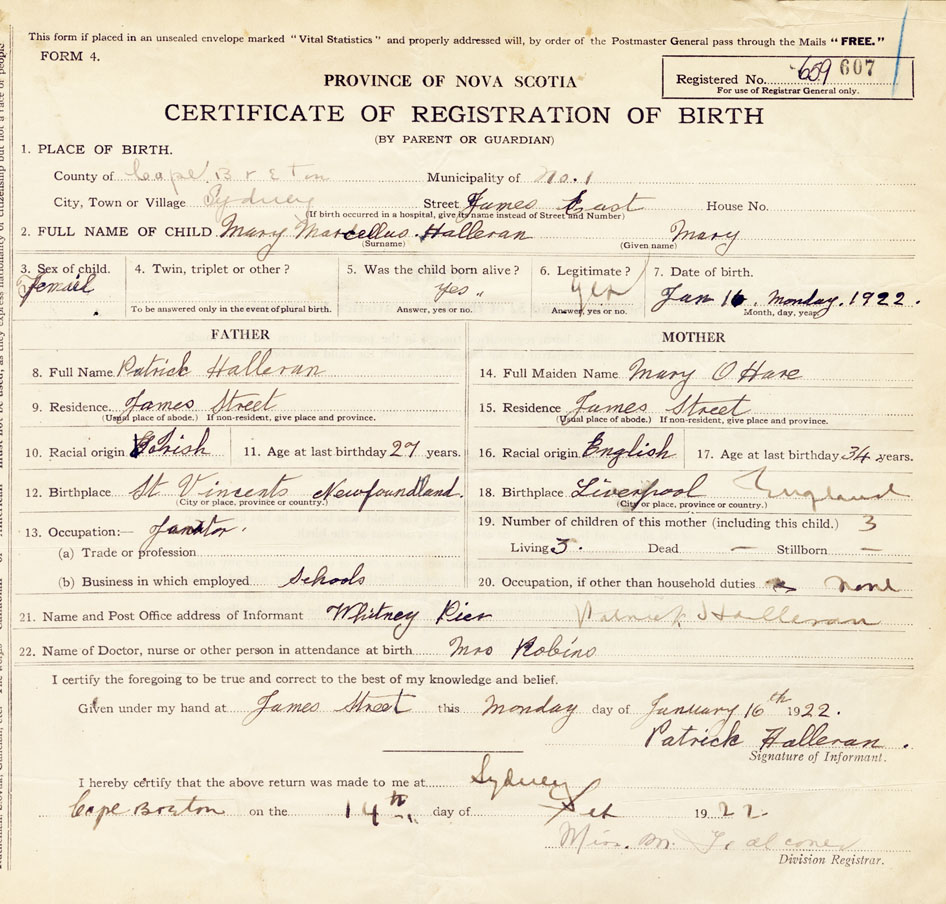 This form if placed in an unsealed envelope marked "Vital Statistics" and properly addressed will, by order of the Postmaster General pass through the Mails "FREE."
FORM 4.
Registered No. 659 607
For use of Registrar General only.
PROVINCE OF NOVA SCOTIA
CERTIFICATE OF REGISTRATION OF BIRTH
(BY PARENT OR GUARDIAN)
1. PLACE OF BIRTH.
County of Cape Breton Municipality of No. 1
City, Town or Village Sydney Street James East House No.
(If birth occurred in a hospital, give its name instead of Street and Number)
2. FULL NAME OF CHILD Mary Marcellus Halleran Mary
(Surname) (Given name)
3. Sex of child. 4. Twin, triplet or other? 5. Was the child born alive? 6. Legitimate? 7. Date of birth.
Femail yes yes Jan 16, Monday, 1922.
To be answered only in the event of plural birth. Answer, yes or no. Answer, yes or no. Month, day, year
FATHER MOTHER
8. Full Name Patrick Halleran 14. Full Maiden Name Mary O Hare
9. Residence James Street 15. Residence James Street
(Usual place of abode.) If non-resident, give place and province. (Usual place of abode.) If non-resident, give place and province.
10. Racial origin Irish 11. Age at last birthday 27 years. 16. Racial origin English 17. Age at last birthday 34 years.
12. Birthplace St Vincents Newfoundland. 18. Birthplace Liverpool England
(City or place, province or country.) (City or place, province or country.)
13. Occupation:— Janator. 19. Number of children of this mother (including this child.) 3
(a) Trade or profession Living 3. Dead — Stillborn —
(b) Business in which employed Schools 20. Occupation, if other than household duties none
21. Name and Post Office address of Informant Whitney Pier Patrick Halleran
22. Name of Doctor, nurse or other person in attendance at birth Mrs Robins
I certify the foregoing to be true and correct to the best of my knowledge and belief.
Given under my hand at James Street this Monday day of January 16th 1922.
Patrick Halleran.
Signature of Informant.
I hereby certify that the above return was made to me at Sydney
Cape Breton on the 14th day of 1922
Miss. M. Falconer
Division Registrar.